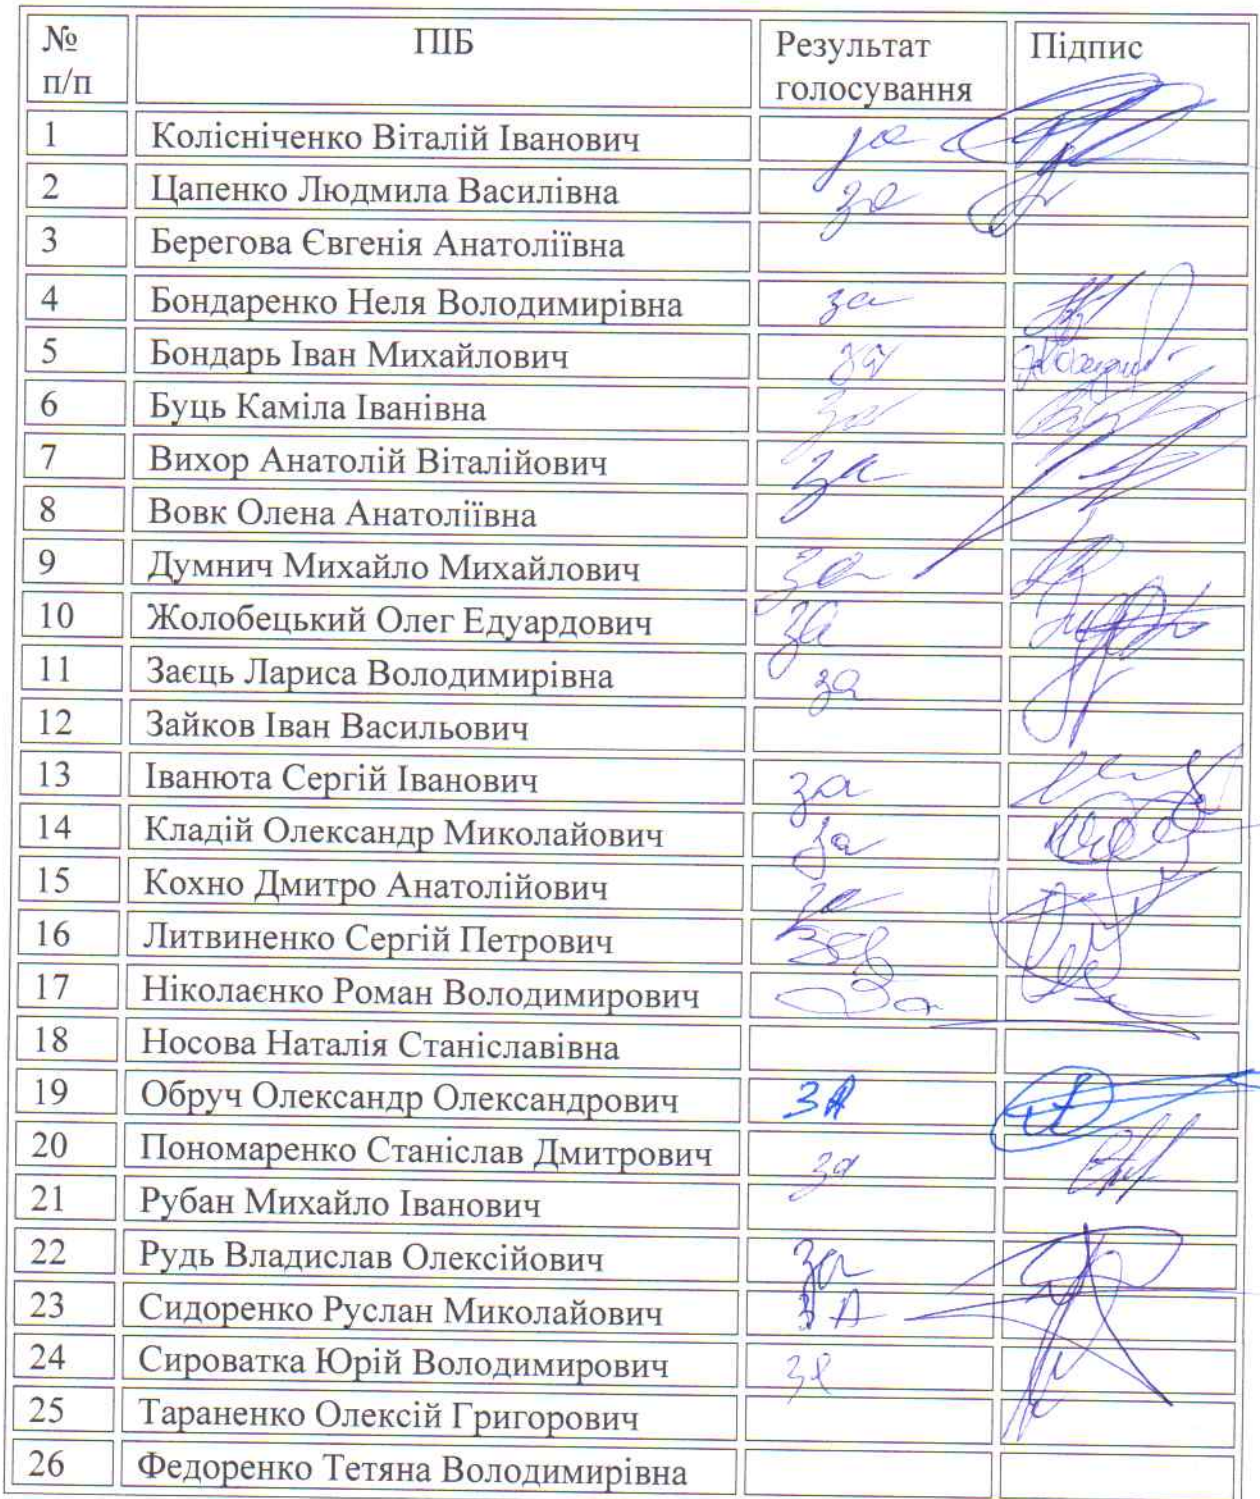 № п/п ПІБ Результат голосування Підпис
1 Колісніченко Віталій Іванович за
2 Цапенко Людмила Василівна за
3 Берегова Євгенія Анатоліївна
4 Бондаренко Неля Володимирівна за
5 Бондарь Іван Михайлович за
6 Буць Каміла Іванівна за
7 Вихор Анатолій Віталійович за
8 Вовк Олена Анатоліївна
9 Думнич Михайло Михайлович за
10 Жолобецький Олег Едуардович за
11 Заєць Лариса Володимирівна за
12 Зайков Іван Васильович
13 Іванюта Сергій Іванович за
14 Кладій Олександр Миколайович за
15 Кохно Дмитро Анатолійович за
16 Литвиненко Сергій Петрович за
17 Ніколаєнко Роман Володимирович За
18 Носова Наталія Станіславівна
19 Обруч Олександр Олександрович ЗА
20 Пономаренко Станіслав Дмитрович за
21 Рубан Михайло Іванович
22 Рудь Владислав Олексійович за
23 Сидоренко Руслан Миколайович ЗА
24 Сироватка Юрій Володимирович за
25 Тараненко Олексій Григорович
26 Федоренко Тетяна Володимирівна